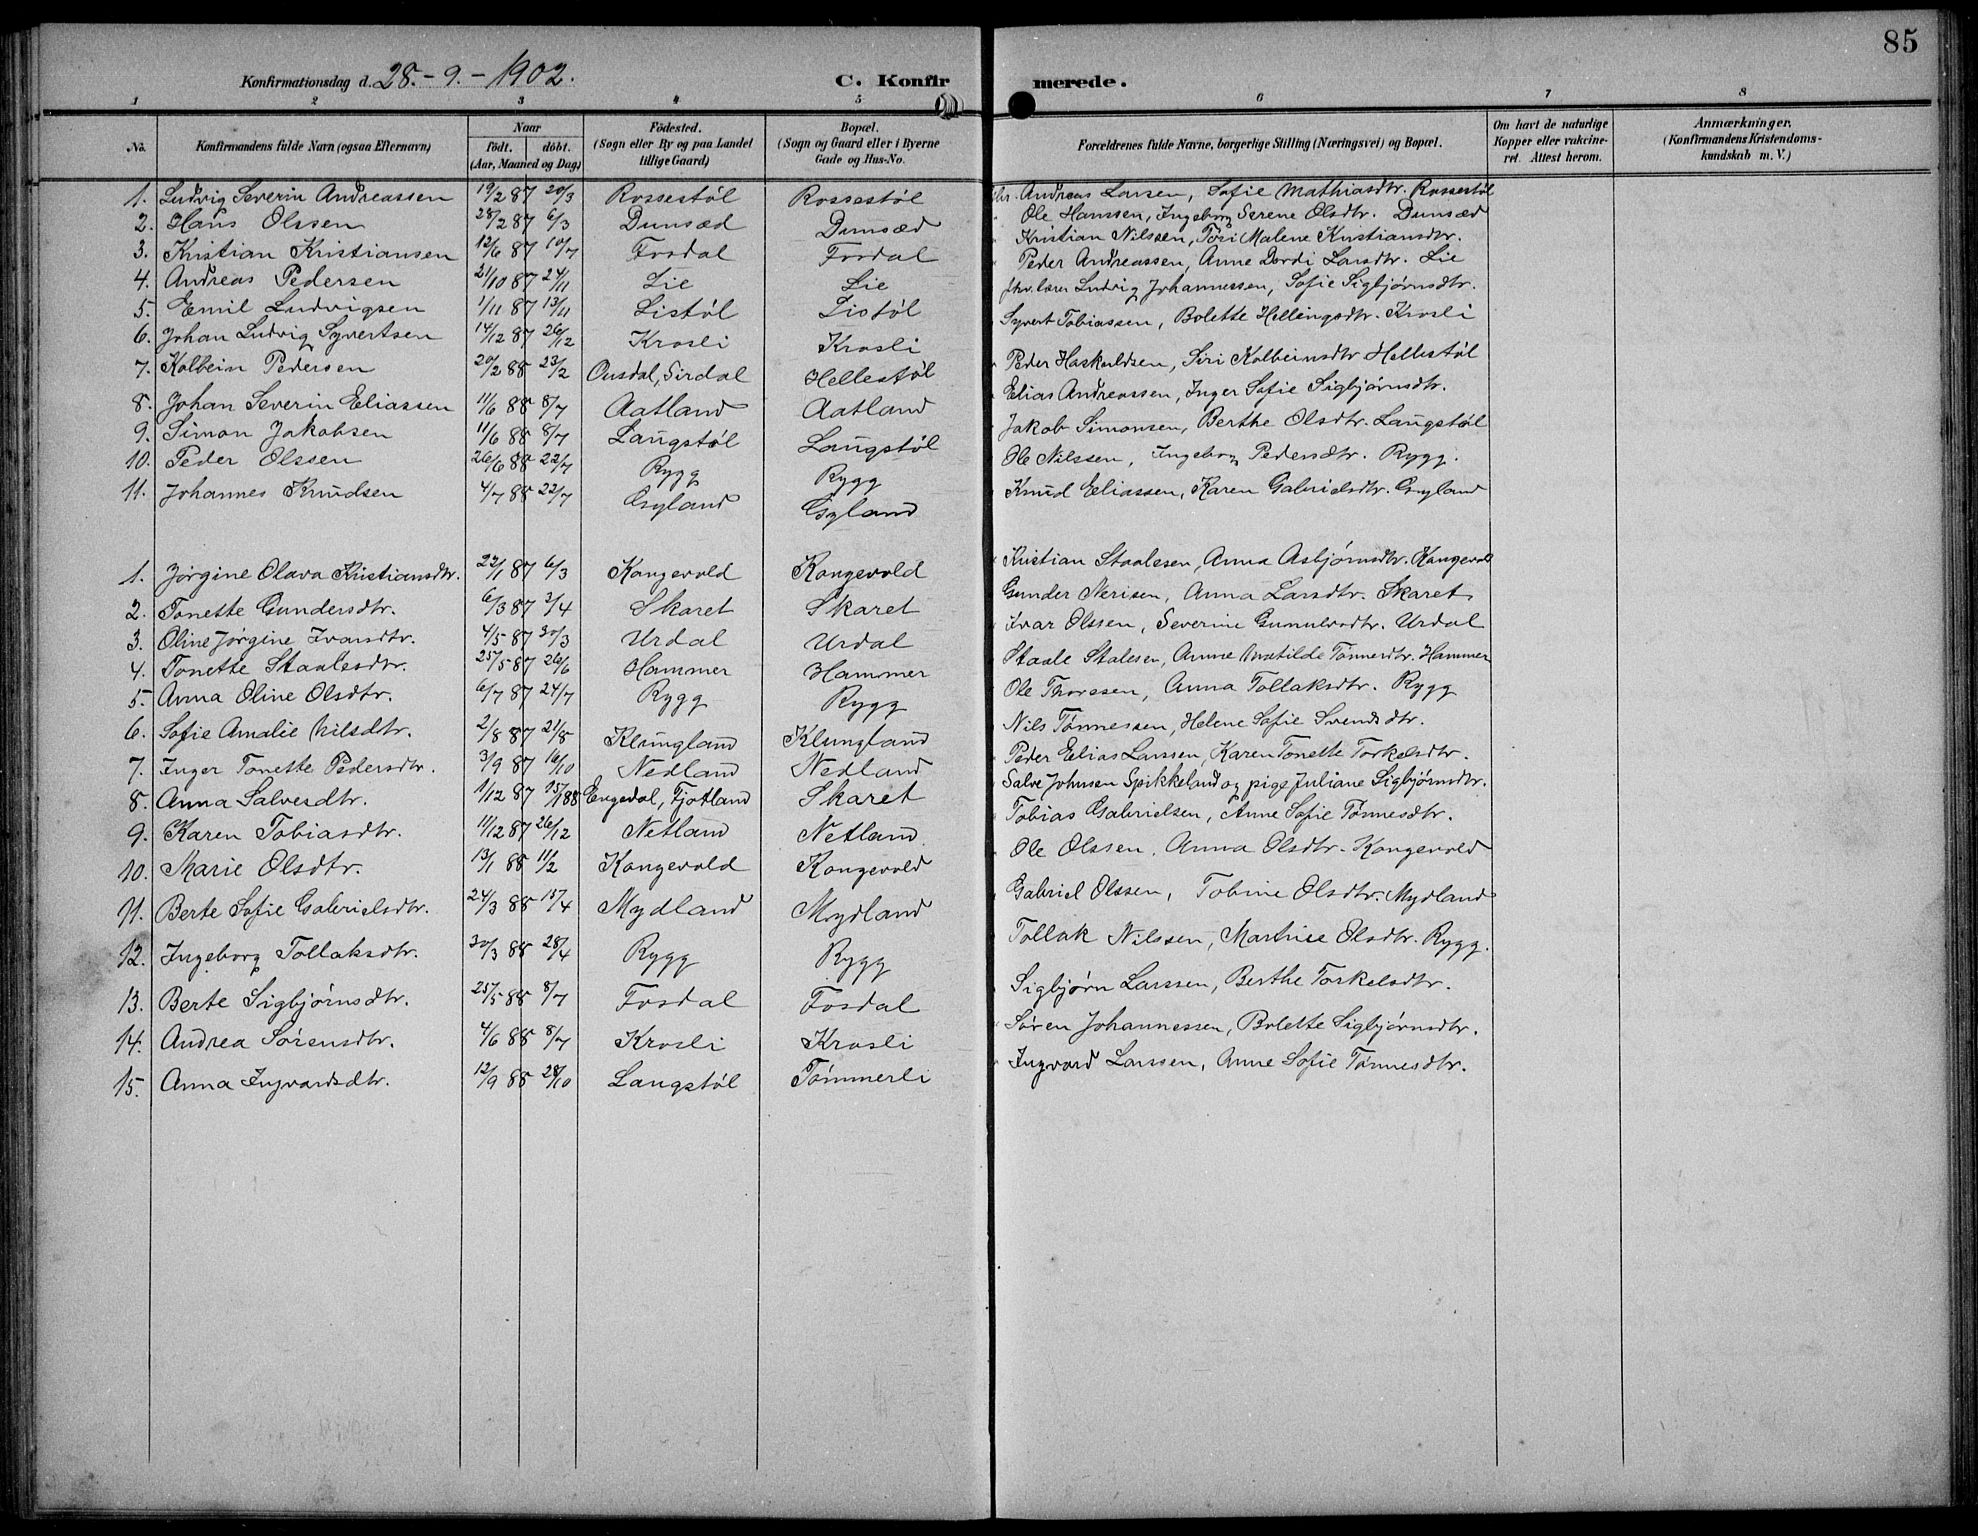 85
Konfirmationsdag d. 28.-9.-1902. C. Konfirmerede.
1 2 3 4 5 6 7 8
No. Konfirmandens fulde Navn (ogsaa Efternavn) Naar födt. döbt. (Aar, Maaned og Dag) Födested. (Sogn eller By og paa Landet tillige Gaard) Bopæl. (Sogn og Gaard eller i Byerne Gade og Hus-No. Forældrenes fulde Navne, borgerlige Stilling (Næringsvei) og Bopæl. Om havt de naturlige Kopper eller vakcineret. Attest herom. Anmærkninger. (Konfirmandens Kristendomskundskab m. V.)
1. Ludvig Severin Andreassen 19/2 87 20/3 Rossestøl Rossestøl Andreas Larsen, Sofie Mathiasdtr. Rossestøl
2. Hans Olssen 28/2 87 6/3 Dunsæd Dunsæd " Ole Hanssen, Ingeborg Serene Olsdtr. Dunsæd
3. Kristian Kristiansen 12/6 87 10/7 Fosdal Fosdal " Kristian Nilssen, Tøri Malene Kristiansdtr.
4. Andreas Pedersen 21/10 87 24/11 Lie Lie " Peder Andreassen, Anne Dordi Larsdtr. Lie
5. Emil Ludvigsen 1/11 87 13/11 Listøl Listøl lærer Ludvig Johannessen, Sofie Sigbjørnsdtr.
6. Johan Ludvig Syvertsen 14/12 87 26/12 Krosli Krosli Syvert Tobiassen, Bolette Hellingsdtr. Krosli
7. Kolbein Pedersen 20/2 88 23/2 Ousdal, Sirdal Hellestøl " Peder Haskuldsen, Siri Kolbeinsdtr Hellestøl
8. Johan Severin Eliassen 11/6 88 8/7 Aatland Aatland " Elias Andreassen, Inger Sofie Sigbjørnsdtr.
9. Simon Jakobsen 11/6 88 8/7 Laugstøl Laugstøl " Jakob Simonsen, Berthe Olsdtr. Laugstøl
10. Peder Olssen 26/6 88 22/7 Rygg Rygg " Ole Nilssen, Ingeborg Pedersdtr. Rygg.
11. Johannes Knudsen 4/7 88 22/7 Gyland Gyland " Knud Eliassen, Karen Gabrielsdtr. Gyland
1. Jørgine Olava Kristiansdtr. 22/1 87 6/3 Kongevold Kongevold " Kristian Staalesen, Anna Asbjørnsdtr. Kongevold
2. Tonette Gundersdtr. 6/3 87 3/4 Skaret Skaret Gunder Nerisen, Anna Larsdtr. Skaret
3. Oline Jørgine Ivarsdtr. 4/5 87 30/3 Urdal Urdal " Ivar Olssen, Severine Gunnulvsdtr. Urdal
4. Tonette Staalesdtr. 25/5 87 26/6 Hammer Hammer " Staale Stalesen, Anne Matilde Tønnesdtr. Hammer
5. Anna Oline Olsdtr. 6/7 87 24/7 Rygg Rygg " Ole Thorssen, Anna Tollaksdtr. Rygg
6. Sofie Amalie Nilsdtr. 2/8 87 21/8 Klungland Klungland " Nils Tønnessen, Helene Sofie Svendsdtr.
7. Inger Tonette Pedersdtr. 3/9 87 16/10 Nedland Nedland " Peder Elias Larssen, Karen Tonette Torkelsdtr.
8. Anna Salvesdtr. 1/12 87 15/1 88 Engedal, Fjotland Skaret Salve Johnsen Spikkeland og pige Juliane Sigbjørnsdtr.
9. Karen Tobiasdtr. 11/12 87 26/12 Netland Netland " Tobias Gabrielsen, Anne Sofie Tønnesdtr.
10. Marie Olsdtr. 13/1 88 11/2 Kongevold Kongevold " Ole Olssen, Anna Olsdtr. Kongevold
11. Berte Sofie Gabrielsdtr. 24/3 88 15/4 Mydland Mydland " Gabriel Olssen, Tobine Olsdtr. Mydland
12. Ingeborg Tollaksdtr. 30/3 88 28/4 Rygg Rygg " Tollak Nilssen, Martine Olsdtr. Rygg.
13. Berte Sigbjørnsdtr. 25/5 88 8/7 Fosdal Fosdal " Sigbjørn Larssen, Berthe Torkelsdtr.
14. Andrea Sørensdtr. 4/6 88 8/7 Krosli Krosli " Søren Johannessen, Bolette Sigbjørnsdtr.
15. Anna Ingvardsdtr. 12/9 88 28/10 Langstøl Tømmerli " Ingvard Larssen, Anne Sofie Tønnesdtr.